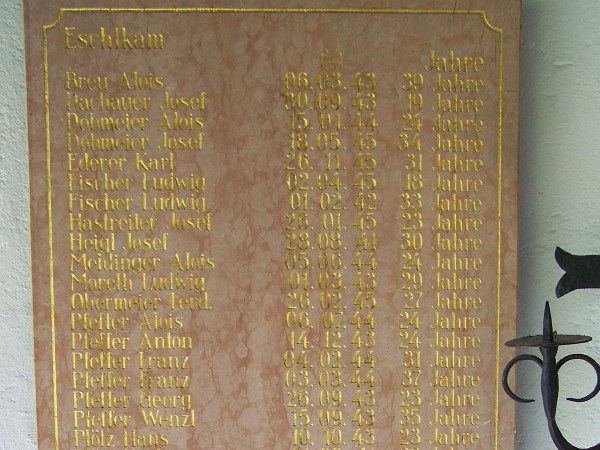 Eschlkam
Jahre
Breu Alois 06.03.43 39 Jahre
Dachauer Josef 30.09.43 19 Jahre
Dobmeier Alois 15.01.44 24 Jahre
Dobmeier Josef 18.05.45 34 Jahre
Ederer Karl 26.11.46 31 Jahre
Fischer Ludwig 02.04.45 18 Jahre
Fischer Ludwig 01.02.42 33 Jahre
Hastreiter Josef 26.01.45 23 Jahre
Heigl Josef 28.08.41 30 Jahre
Meidinger Alois 05.06.44 24 Jahre
Moreth Ludwig 01.03.43 29 Jahre
Obermeier Ferd. 26.02.45 27 Jahre
Pfeffer Alois 06.07.44 24 Jahre
Pfeffer Anton 14.12.43 24 Jahre
Pfeffer Franz 04.02.44 31 Jahre
Pfeffer Franz 03.03.44 37 Jahre
Pfeffer Georg 26.09.43 23 Jahre
Pfeffer Wenzl 15.09.43 35 Jahre
Plölz Hans 10.10.43 23 Jahre